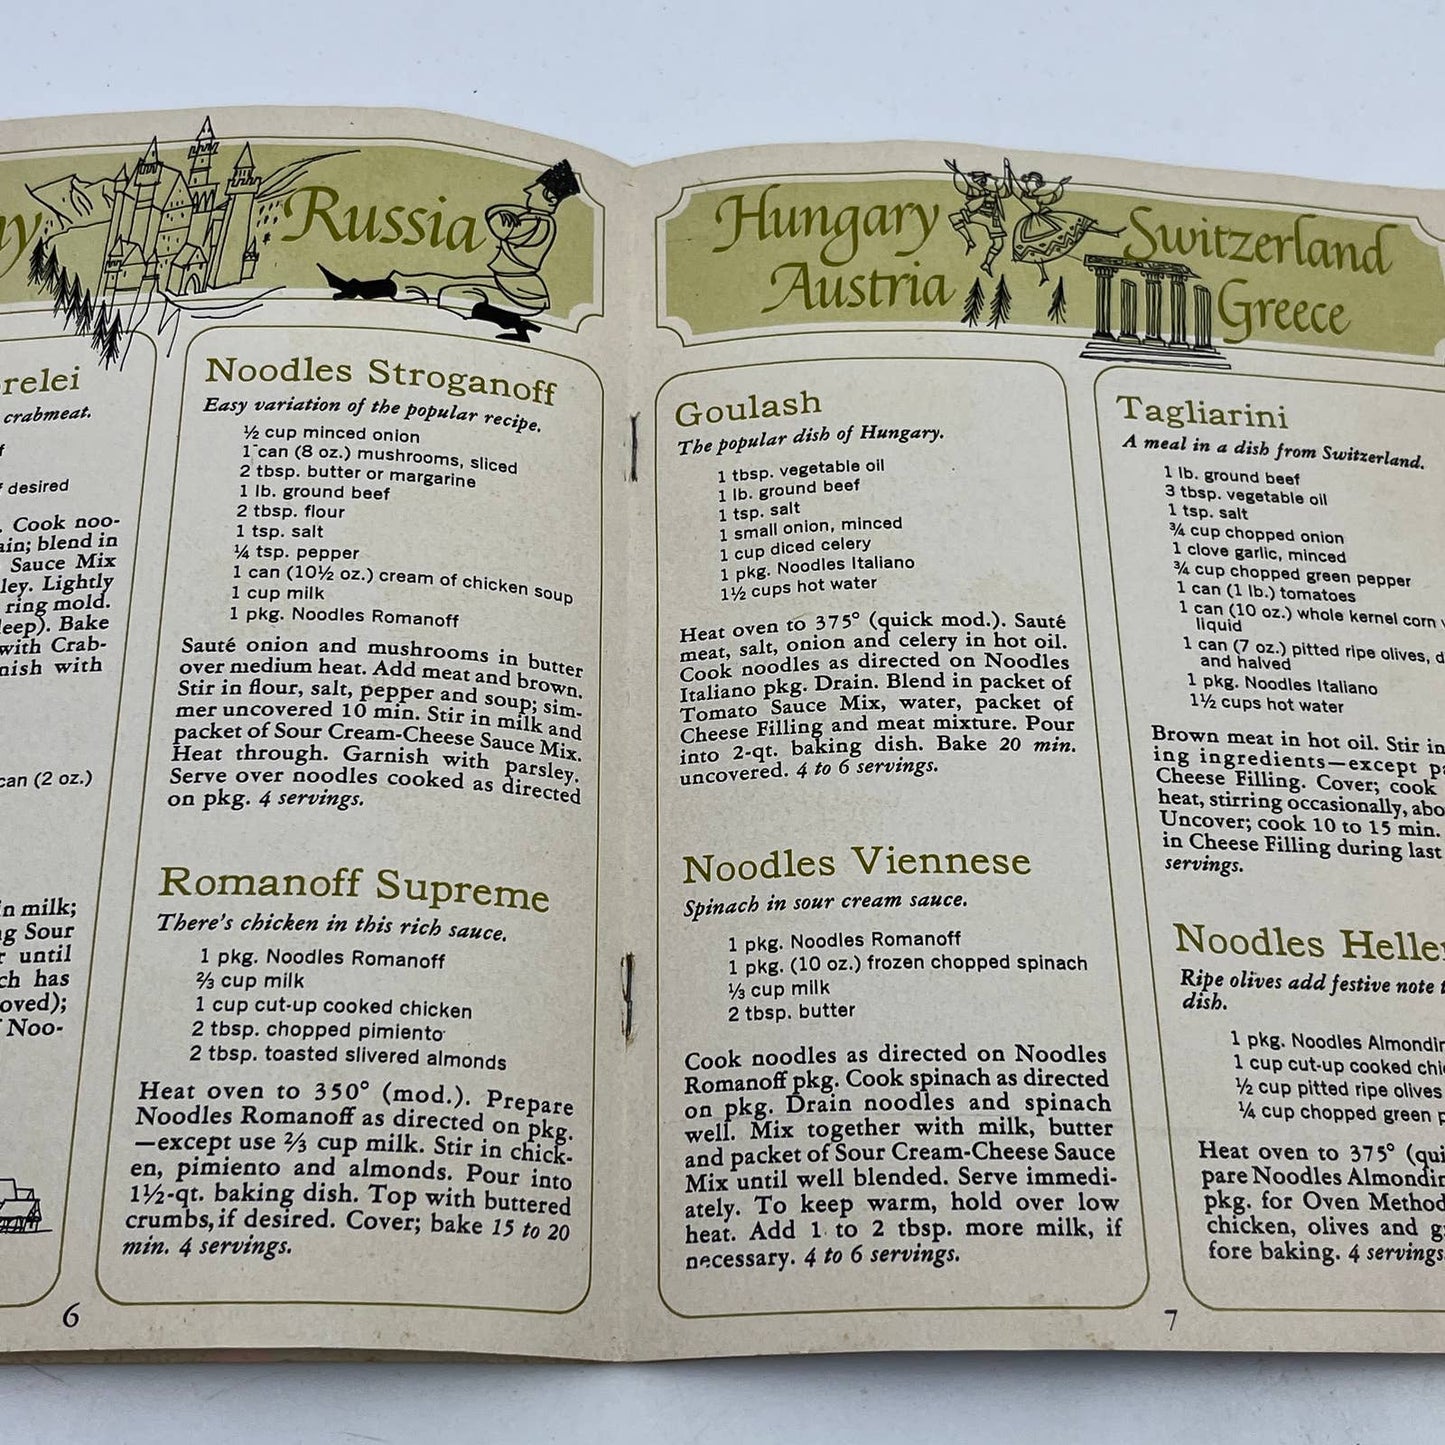 Russia
relei
crabmeat.
desired
Cook noo-
blend in
Sauce Mix
Lightly
ring mold.
Bake
with Crab-
with
can (2 oz.)
in milk;
Sour
until
has
Noo-
6
Noodles Stroganoff
Easy variation of the popular recipe.
½ cup minced onion
1 can (8 oz.) mushrooms, sliced
2 tbsp. butter or margarine
1 lb. ground beef
2 tbsp. flour
1 tsp. salt
¼ tsp. pepper
1 can (10½ oz.) cream of chicken soup
1 cup milk
1 pkg. Noodles Romanoff
Sauté onion and mushrooms in butter
over medium heat. Add meat and brown.
Stir in flour, salt, pepper and soup; sim-
mer uncovered 10 min. Stir in milk and
packet of Sour Cream-Cheese Sauce Mix.
Heat through. Garnish with parsley.
Serve over noodles cooked as directed
on pkg. 4 servings.
Romanoff Supreme
There's chicken in this rich sauce.
1 pkg. Noodles Romanoff
⅔ cup milk
1 cup cut-up cooked chicken
2 tbsp. chopped pimiento
2 tbsp. toasted slivered almonds
Heat oven to 350° (mod.). Prepare
Noodles Romanoff as directed on pkg.
—except use ⅔ cup milk. Stir in chick-
en, pimiento and almonds. Pour into
1½-qt. baking dish. Top with buttered
crumbs, if desired. Cover; bake 15 to 20
min. 4 servings.
Hungary
Austria
Switzerland
Greece
Goulash
The popular dish of Hungary.
1 tbsp. vegetable oil
1 lb. ground beef
1 tsp. salt
1 small onion, minced
1 cup diced celery
1 pkg. Noodles Italiano
1½ cups hot water
Heat oven to 375° (quick mod.). Sauté
meat, salt, onion and celery in hot oil.
Cook noodles as directed on Noodles
Italiano pkg. Drain. Blend in packet of
Tomato Sauce Mix, water, packet of
Cheese Filling and meat mixture. Pour
into 2-qt. baking dish. Bake 20 min.
uncovered. 4 to 6 servings.
Noodles Viennese
Spinach in sour cream sauce.
1 pkg. Noodles Romanoff
1 pkg. (10 oz.) frozen chopped spinach
⅓ cup milk
2 tbsp. butter
Cook noodles as directed on Noodles
Romanoff pkg. Cook spinach as directed
on pkg. Drain noodles and spinach
well. Mix together with milk, butter
and packet of Sour Cream-Cheese Sauce
Mix until well blended. Serve immedi-
ately. To keep warm, hold over low
heat. Add 1 to 2 tbsp. more milk, if
necessary. 4 to 6 servings.
Tagliarini
A meal in a dish from Switzerland.
1 lb. ground beef
3 tbsp. vegetable oil
1 tsp. salt
¾ cup chopped onion
1 clove garlic, minced
¾ cup chopped green pepper
1 can (1 lb.) tomatoes
1 can (10 oz.) whole kernel corn
liquid
1 can (7 oz.) pitted ripe olives,
and halved
1 pkg. Noodles Italiano
1½ cups hot water
Brown meat in hot oil. Stir in
ing ingredients—except
Cheese Filling. Cover; cook
heat, stirring occasionally,
Uncover; cook 10 to 15 min.
in Cheese Filling during last
servings.
Noodles
Ripe olives add festive note
dish.
1 pkg. Noodles
1 cup cut-up cooked
½ cup pitted ripe olives
¼ cup chopped green
Heat oven to 375°
pare Noodles
pkg. for Oven Method
chicken, olives and
fore baking. 4 servings
7